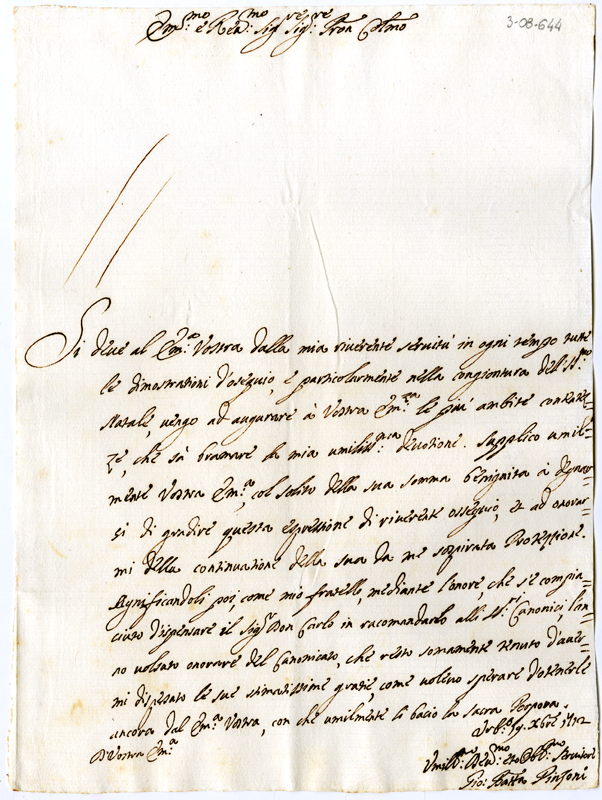 3-08-644
Em.mo e Rev.mo Sig.re Sig.re Pron Colmo
Si deve al Em.a Vostra dalla mia riverente servitù in ogni tempo tutte
le dimostrationi d'osequio, e particolarmente nella congiontura dell SS.mo
Natale, vengo ad augurare à Vostra Em.za le più ambite contente=
ze, che sà bramare la mia umiliss.ma devotione. Supplico umil=
mente Vostra Em.a, col solito della sua somma benignita à degnar=
si di gradire questa espressione di riverente ossequio, et ad onorar=
mi della continuatione della sua da me sospirata Protetione.
Significandoli poi, come mio fratello, mediante l'onore, che s'è compia=
ciuto dispensare il Sig.r Don Carlo in racomandarlo alli SS.ri Canonici, l'an=
no voluto onorare del Canonicato, che resto somamente tenuto d'aver=
mi dispensato le sue stimatissime gratie come volevo sperare d'otenerle
ancora dal Em.a Vostra, con che umilmente li bacio la sacra Porpora.
D Vostra Em.a
19. Xbre 1712
Umil.mo Dev.mo et Obl.mo Servitore
Gio: Batta Pinzoni